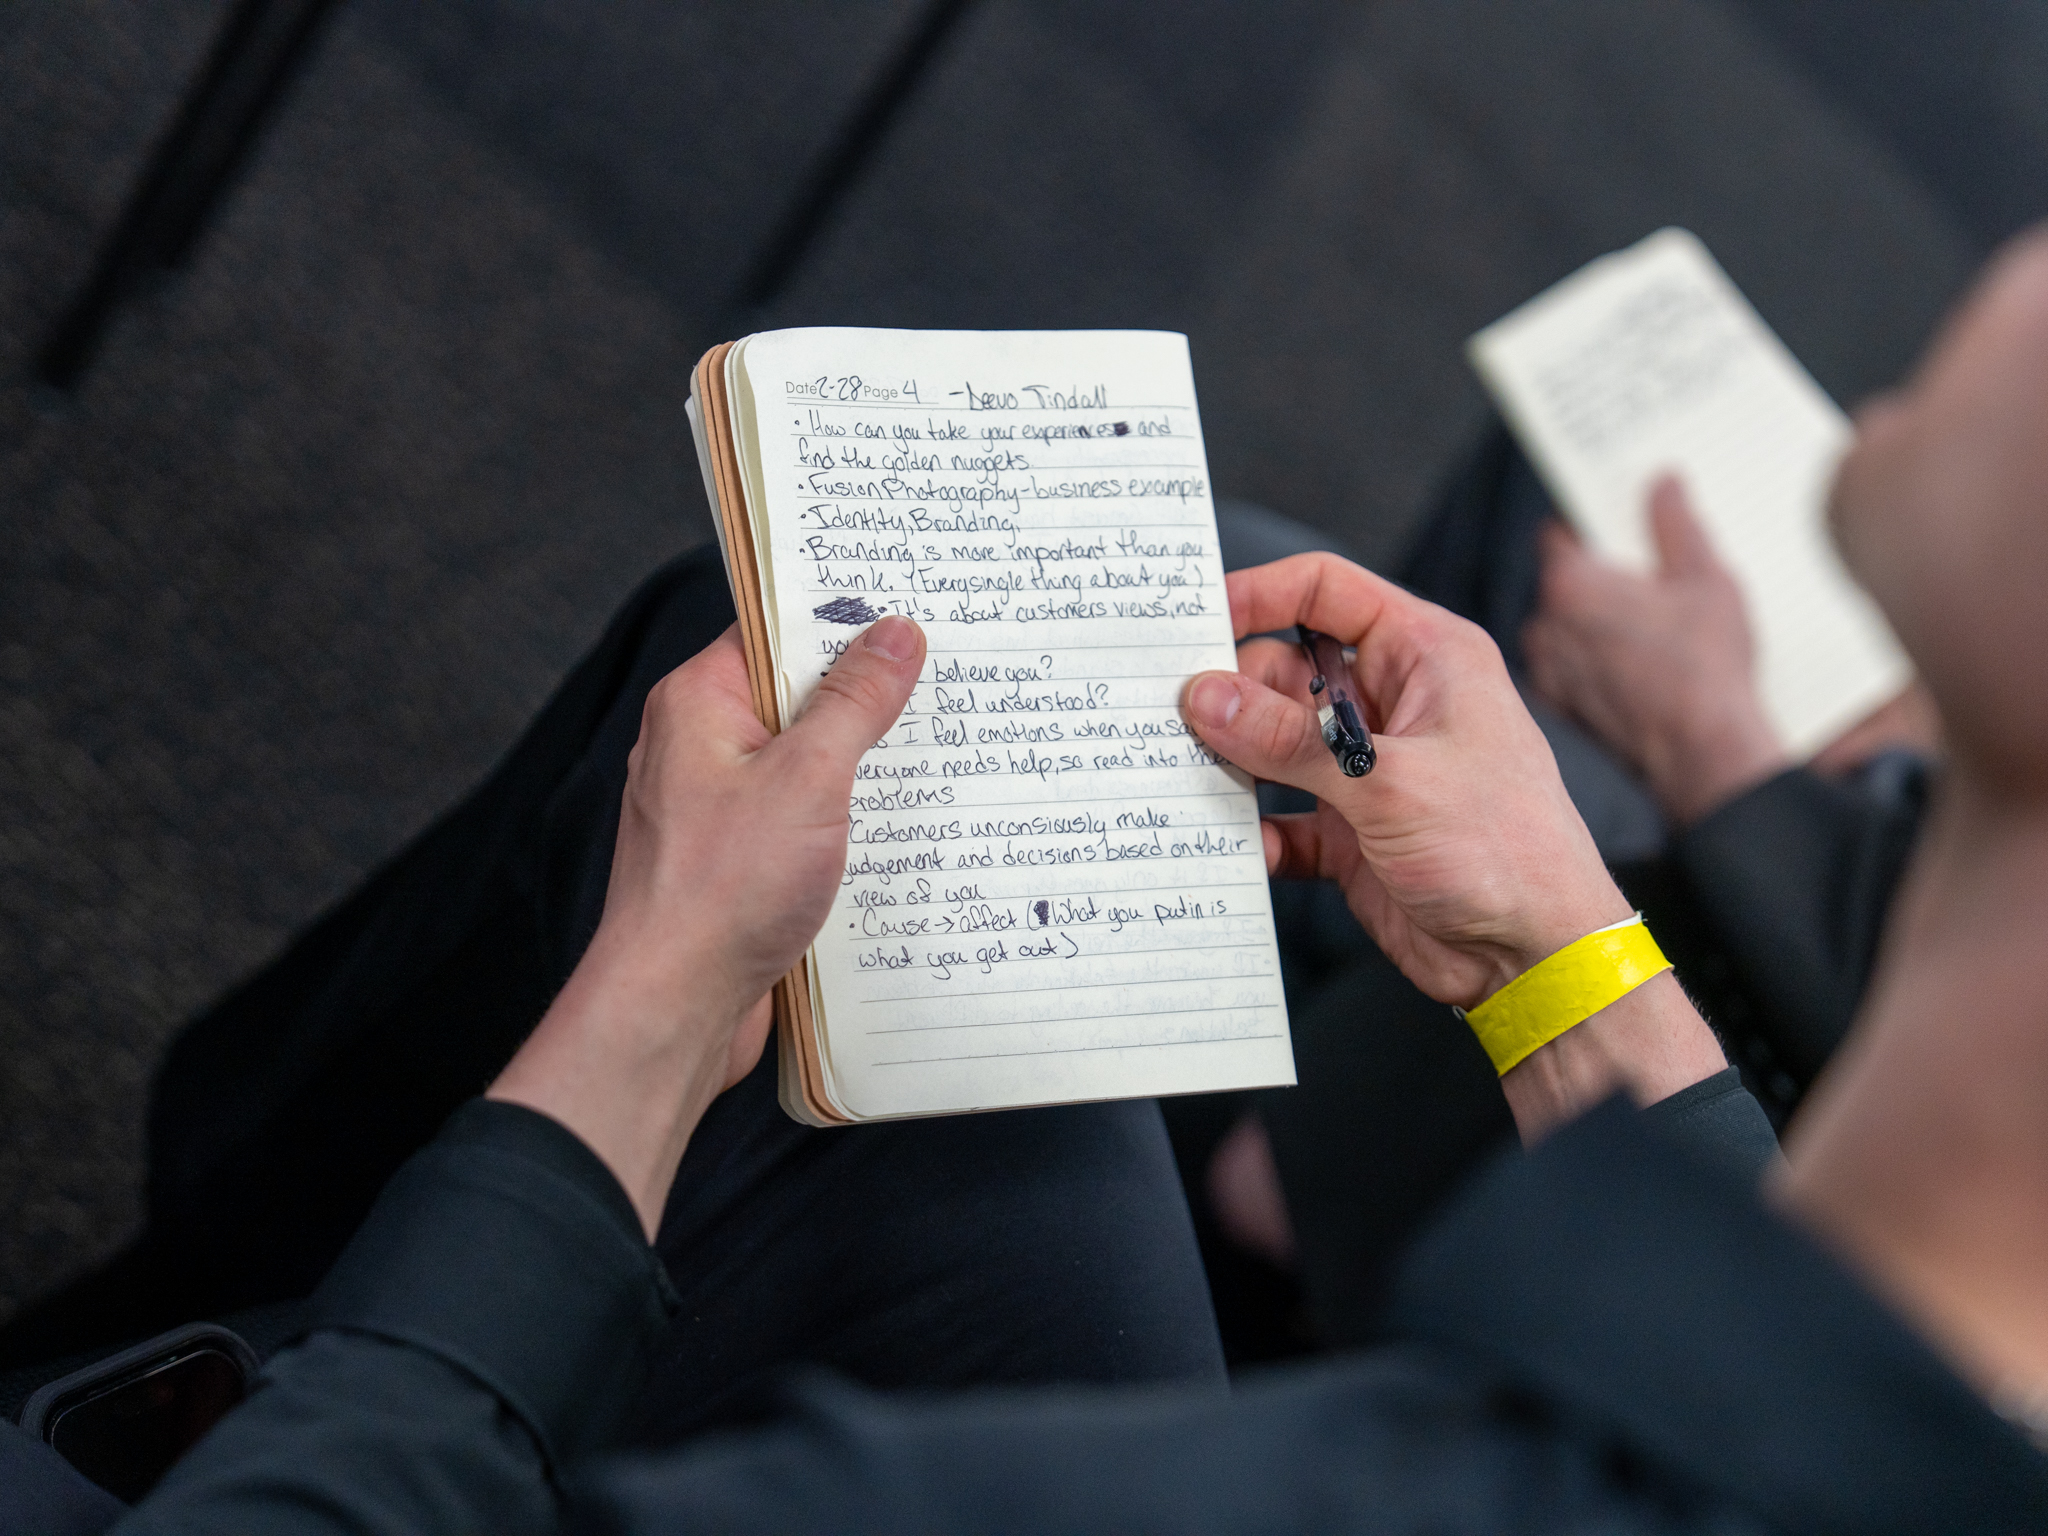 Date 2-28 Page 4 - Deevo Tindall
• How can you take your experiences and
find the golden nuggets.
• Fusion Photography - business example
• Identity, Branding.
• Branding is more important than you
think. (Every single thing about you)
• It's about customers views, not
believe you?
I feel understood?
I feel emotions when you
everyone needs help, so read into
problems
Customers unconsiously make
judgement and decisions based on their
view of you
• Cause → affect (What you put in is
what you get out)